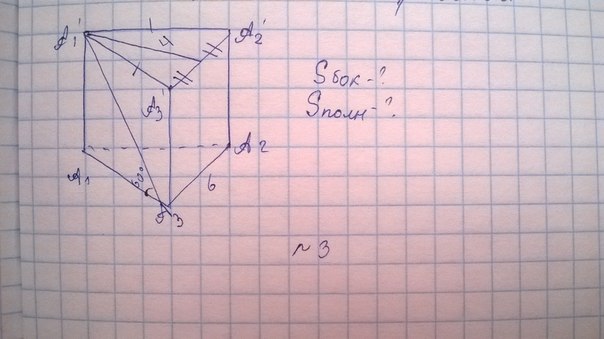 A₁' 4 A₂'
A₃'
Sбок-?
Sполн-?
A₁ 60° A₂
6
A₃
№3